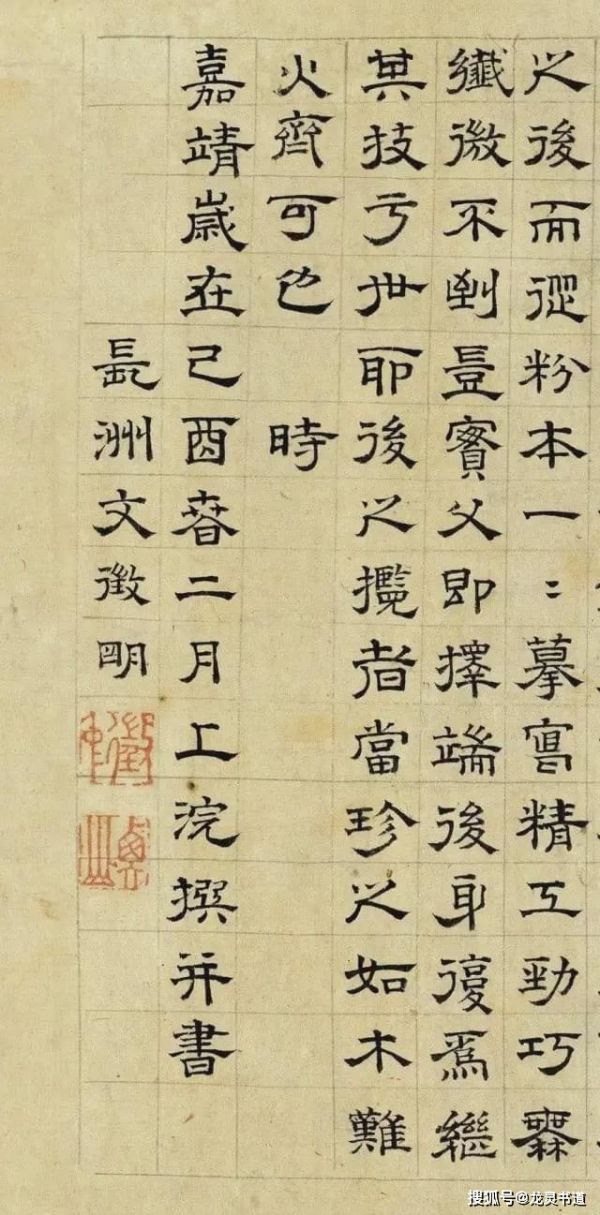 之後而從粉本一〻摹寫精工勁巧無
纖微不到豈實父即擇端後身復為繼
其技于世耶後之攬者當珍之如木難
火齊可也 時
嘉靖歲在己酉春二月上浣撰并書
長洲文徵明
搜狐号@龙灵书道